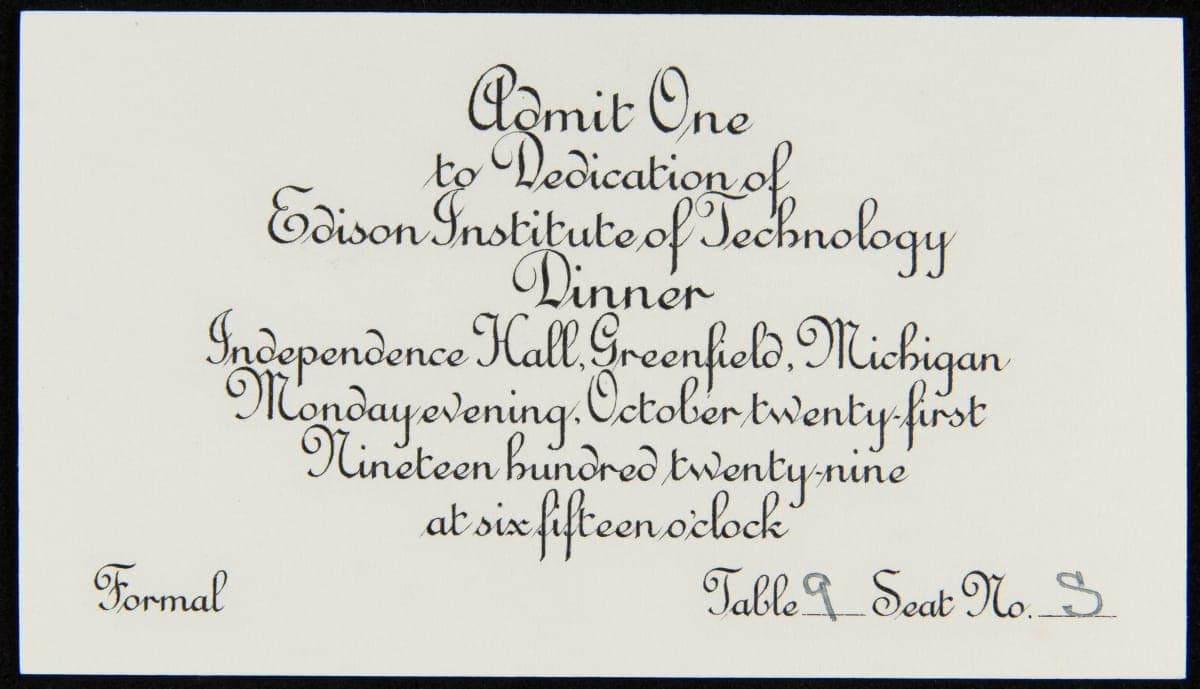 Admit One
to Dedication of
Edison Institute of Technology
Dinner
Independence Hall, Greenfield, Michigan
Monday evening, October twenty-first
Nineteen hundred twenty-nine
at six fifteen o'clock
Formal Table 9 Seat No. S